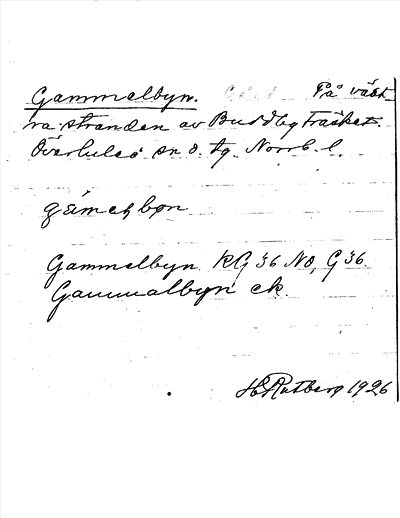 Gammelbyn. På väst-
ra stranden av Buddbyträsket.
Överluleå sn o. tg. Norrb. l.
Gammelbyn KG 36 NO, G 36
Gammalbyn ek.
H Rutberg 1926